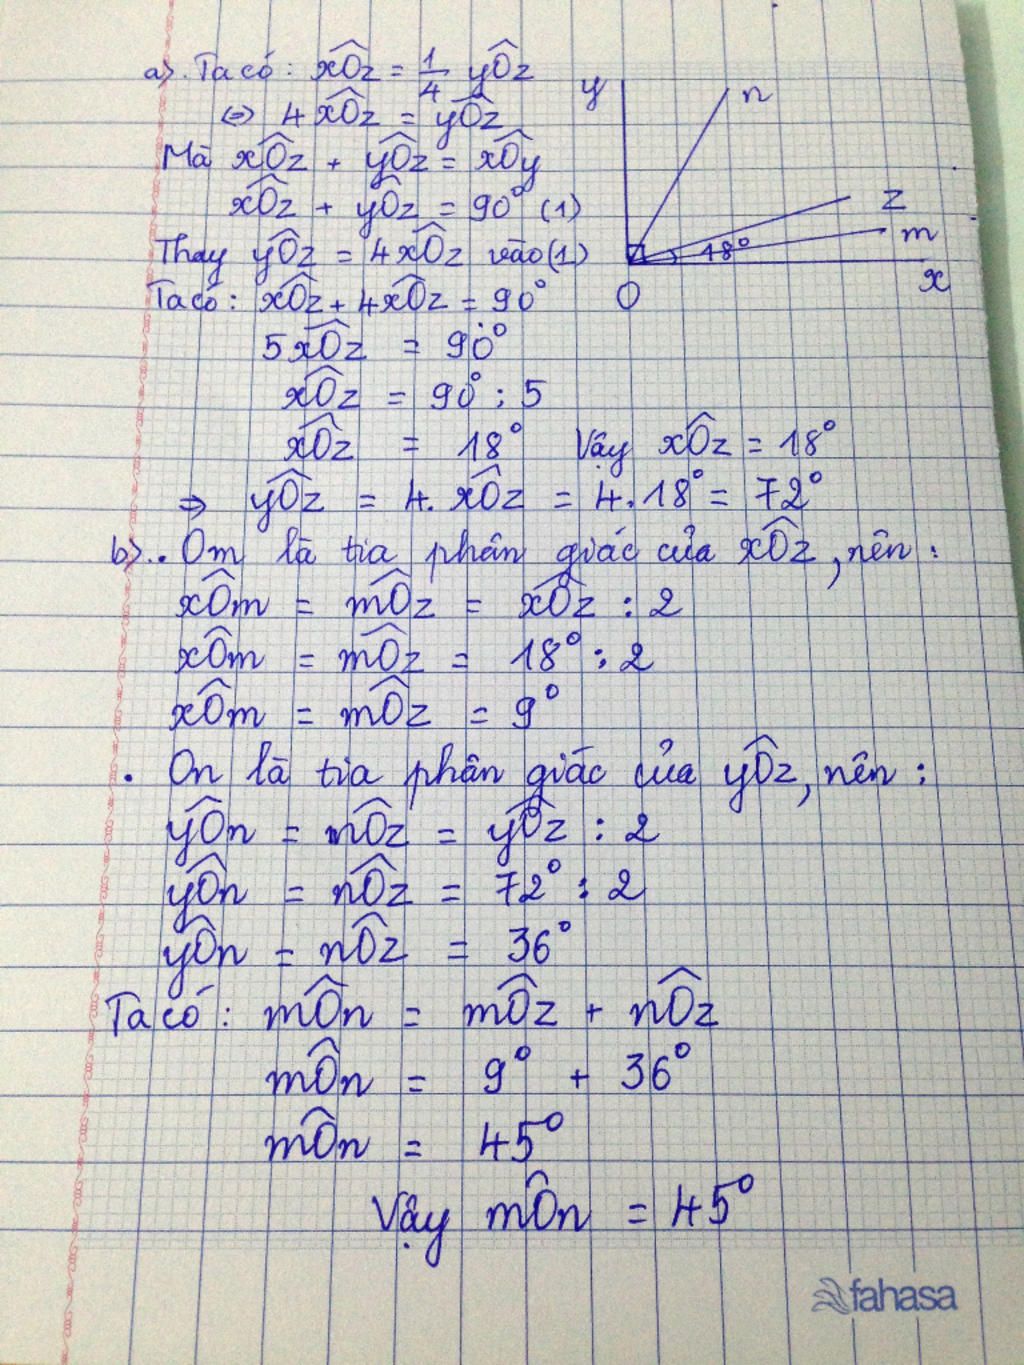 a). Ta có: xÔz = 1/4 yÔz
⇔ 4xÔz = yÔz
Mà xÔz + yÔz = xÔy
xÔz + yÔz = 90° (1)
Thay yÔz = 4xÔz vào (1)
Ta có: xÔz + 4xÔz = 90°
5xÔz = 90°
xÔz = 90° : 5
xÔz = 18° Vậy xÔz = 18°
⇒ yÔz = 4. xÔz = 4.18° = 72°
y
n
z
m
18°
x
O
b). . Om là tia phân giác của xÔz, nên :
xÔm = mÔz = xÔz : 2
xÔm = mÔz = 18° : 2
xÔm = mÔz = 9°
. On là tia phân giác của yÔz, nên :
yÔn = mÔz = yÔz : 2
yÔn = nÔz = 72° : 2
yÔn = nÔz = 36°
Ta có : mÔn = mÔz + nÔz
mÔn = 9° + 36°
mÔn = 45°
Vậy mÔn = 45°
fahasa